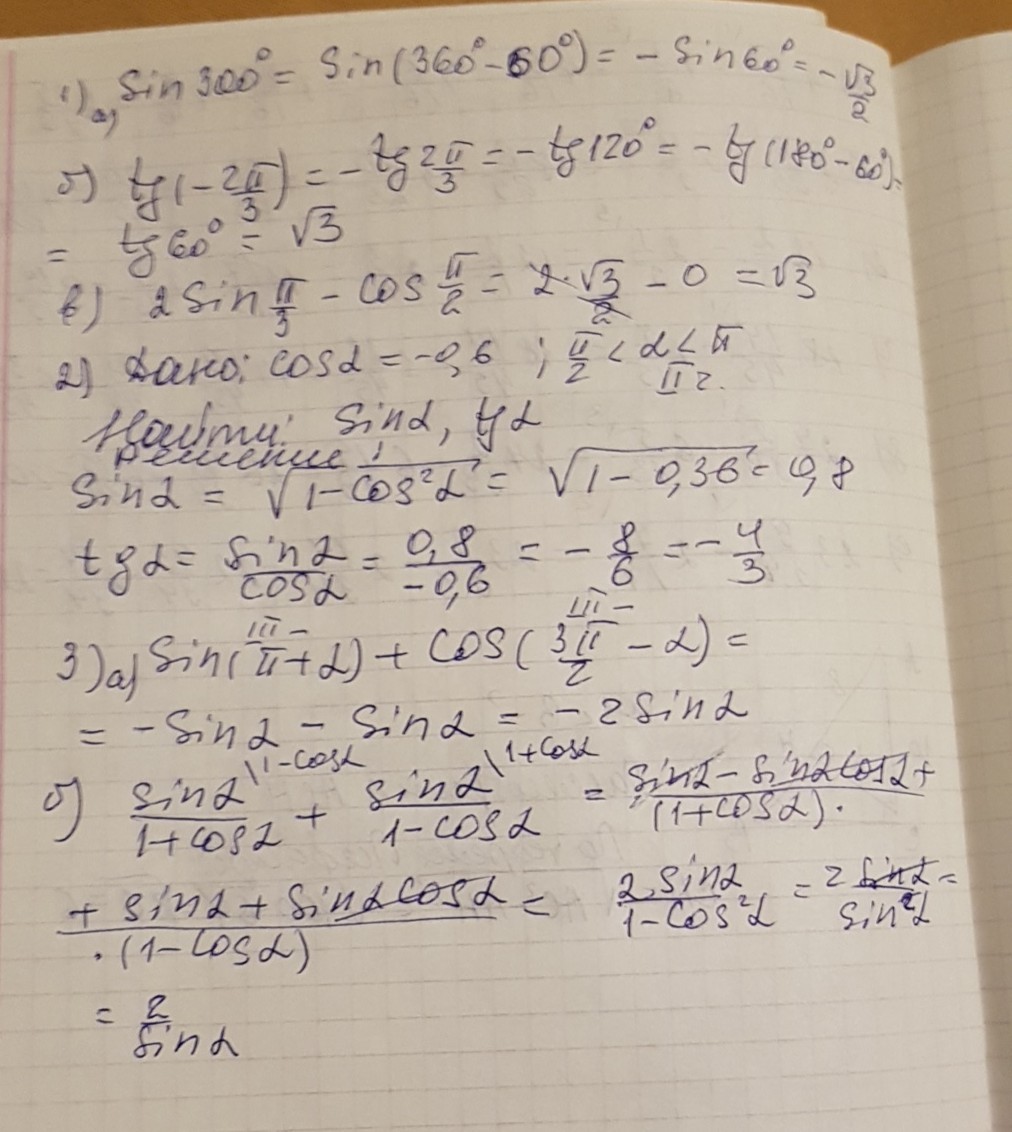 1) а) Sin 300° = Sin(360° - 60°) = - Sin 60° = - √3/2
б) tg(- 2π/3) = - tg 2π/3 = - tg 120° = - tg (180° - 60°) =
= tg 60° = √3
в) 2 Sin π/3 - cos π/2 = 2·√3/2 - 0 = √3
2) Дано: cos α = -0,6 ; π/2 < α < π II г.
Найти: Sin α, tg α
Решение
Sin α = √(1 - cos² α) = √(1 - 0,36) = 0,8
tg α = sin α/cos α = 0,8/-0,6 = - 8/6 = - 4/3
III - III -
3) а) Sin(π + α) + cos(3π/2 - α) =
= - Sin α - Sin α = - 2 Sin α
б) sin α\1-cos α/1 + cos α + sin α\1+cos α/1 - cos α = sin α - sin α cos α +/(1 + cos α) ·
+ sin α + sin α cos α/· (1 - cos α) = 2 sin α/1 - cos² α = 2 sin α/sin² α =
= 2/sin α